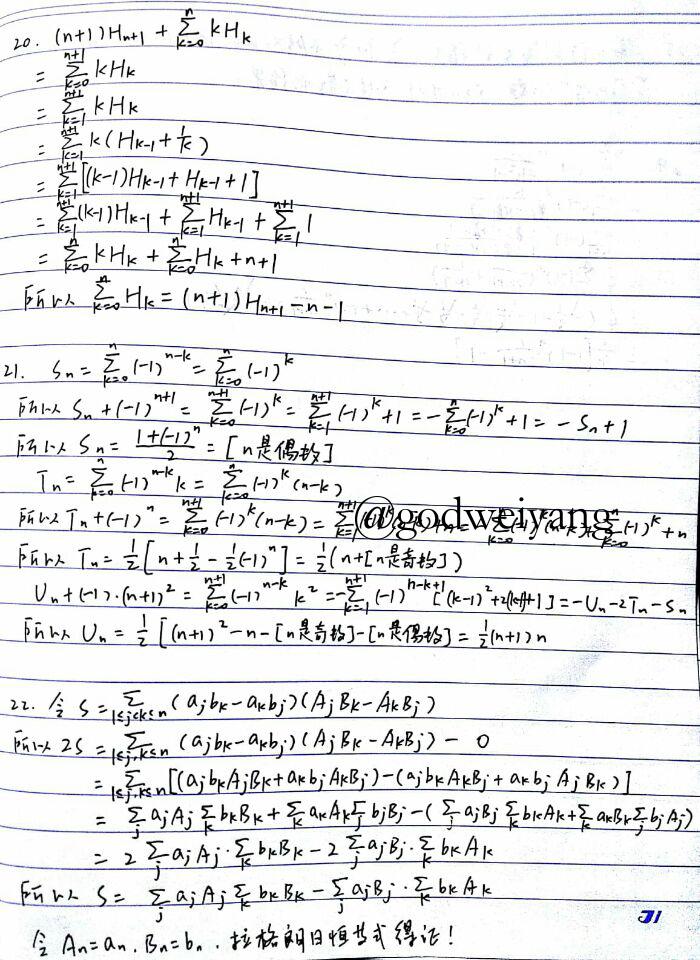 20. (n+1)Hₙ₊₁ + ∑ₖ₌₀ⁿ kHₖ
= ∑ₖ₌₀ⁿ⁺¹ kHₖ
= ∑ₖ₌₁ⁿ⁺¹ kHₖ
= ∑ₖ₌₁ⁿ⁺¹ k(Hₖ₋₁ + 1/k)
= ∑ₖ₌₁ⁿ⁺¹ [(k-1)Hₖ₋₁ + Hₖ₋₁ + 1]
= ∑ₖ₌₁ⁿ⁺¹ (k-1)Hₖ₋₁ + ∑ₖ₌₁ⁿ⁺¹ Hₖ₋₁ + ∑ₖ₌₁ⁿ⁺¹ 1
= ∑ₖ₌₀ⁿ kHₖ + ∑ₖ₌₀ⁿ Hₖ + n+1
所以 ∑ₖ₌₀ⁿ Hₖ = (n+1)Hₙ₊₁ - n - 1
21. Sₙ = ∑ₖ₌₀ⁿ (-1)ⁿ⁻ᵏ = ∑ₖ₌₀ⁿ (-1)ᵏ
所以 Sₙ + (-1)ⁿ⁺¹ = ∑ₖ₌₀ⁿ⁺¹ (-1)ᵏ = ∑ₖ₌₁ⁿ⁺¹ (-1)ᵏ + 1 = -∑ₖ₌₀ⁿ (-1)ᵏ + 1 = -Sₙ + 1
所以 Sₙ = (1+(-1)ⁿ)/2 = [n是偶数]
Tₙ = ∑ₖ₌₀ⁿ (-1)ⁿ⁻ᵏ k = ∑ₖ₌₀ⁿ (-1)ᵏ (n-k)
所以 Tₙ + (-1)ⁿ = ∑ₖ₌₀ⁿ⁺¹ (-1)ᵏ (n-k) = ∑ₖ₌₁ⁿ⁺¹ (-1)ᵏ + n = ∑ₖ₌₀ⁿ (-1)ᵏ + ∑ₖ₌₀ⁿ (-1)ᵏ + n
@godweiyang
所以 Tₙ = ½[n + ½ - ½(-1)ⁿ] = ½(n + [n是奇数])
Uₙ + (-1)·(n+1)² = ∑ₖ₌₀ⁿ⁺¹ (-1)ⁿ⁻ᵏ k² = -∑ₖ₌₁ⁿ⁺¹ (-1)ⁿ⁻ᵏ⁺¹ [(k-1)² + 2(k-1) + 1] = -Uₙ - 2Tₙ - Sₙ
所以 Uₙ = ½[(n+1)² - n - [n是奇数] - [n是偶数] = ½(n+1)n
22. 令 S = ∑1≤j<k≤n (aⱼbₖ - aₖbⱼ)(AⱼBₖ - AₖBⱼ)
所以 2S = ∑1≤j,k≤n (aⱼbₖ - aₖbⱼ)(AⱼBₖ - AₖBⱼ) - 0
= ∑1≤j,k≤n [(aⱼbₖAⱼBₖ + aₖbⱼAₖBⱼ) - (aⱼbₖAₖBⱼ + aₖbⱼAⱼBₖ)]
= ∑ⱼ aⱼAⱼ ∑ₖ bₖBₖ + ∑ₖ aₖAₖ ∑ⱼ bⱼBⱼ - (∑ⱼ aⱼBⱼ ∑ₖ bₖAₖ + ∑ₖ aₖBₖ ∑ⱼ bⱼAⱼ)
= 2 ∑ⱼ aⱼAⱼ · ∑ₖ bₖBₖ - 2 ∑ⱼ aⱼBⱼ · ∑ₖ bₖAₖ
所以 S = ∑ⱼ aⱼAⱼ ∑ₖ bₖBₖ - ∑ⱼ aⱼBⱼ · ∑ₖ bₖAₖ
令 Aₙ = aₙ. Bₙ = bₙ. 拉格朗日恒等式得证!